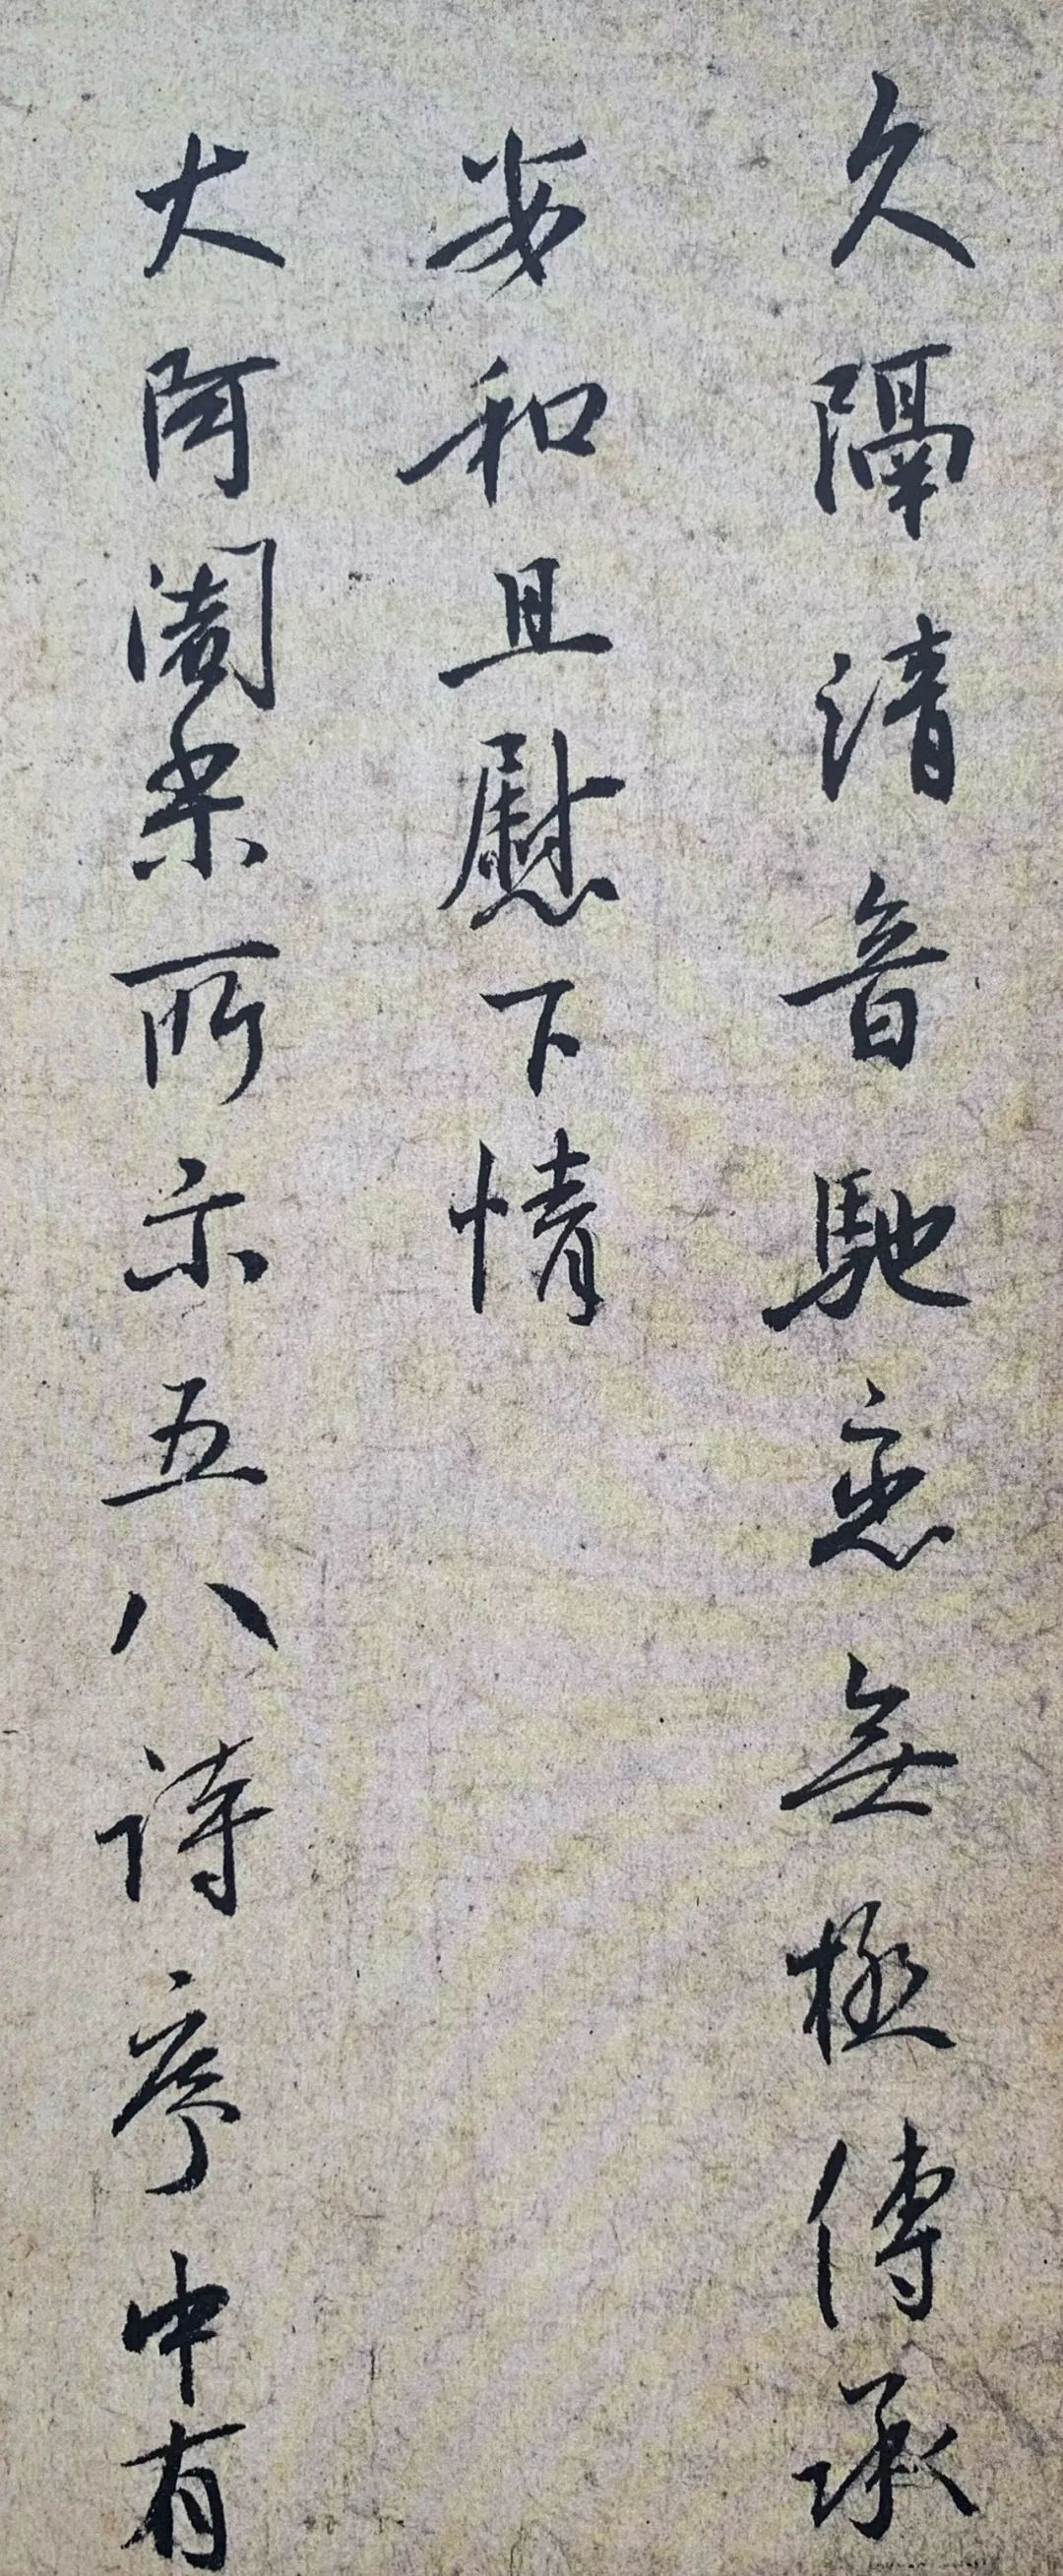 久隔清音馳戀無極傳承
安和且慰下情
大阿闍梨所示五八詩序中有